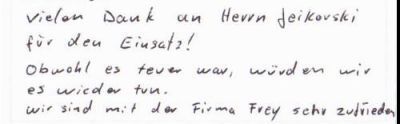 Vielen Dank an Herrn Jeikovski
für den Einsatz!
Obwohl es teuer war, würden wir
es wieder tun.
Wir sind mit der Firma Frey sehr zufrieden